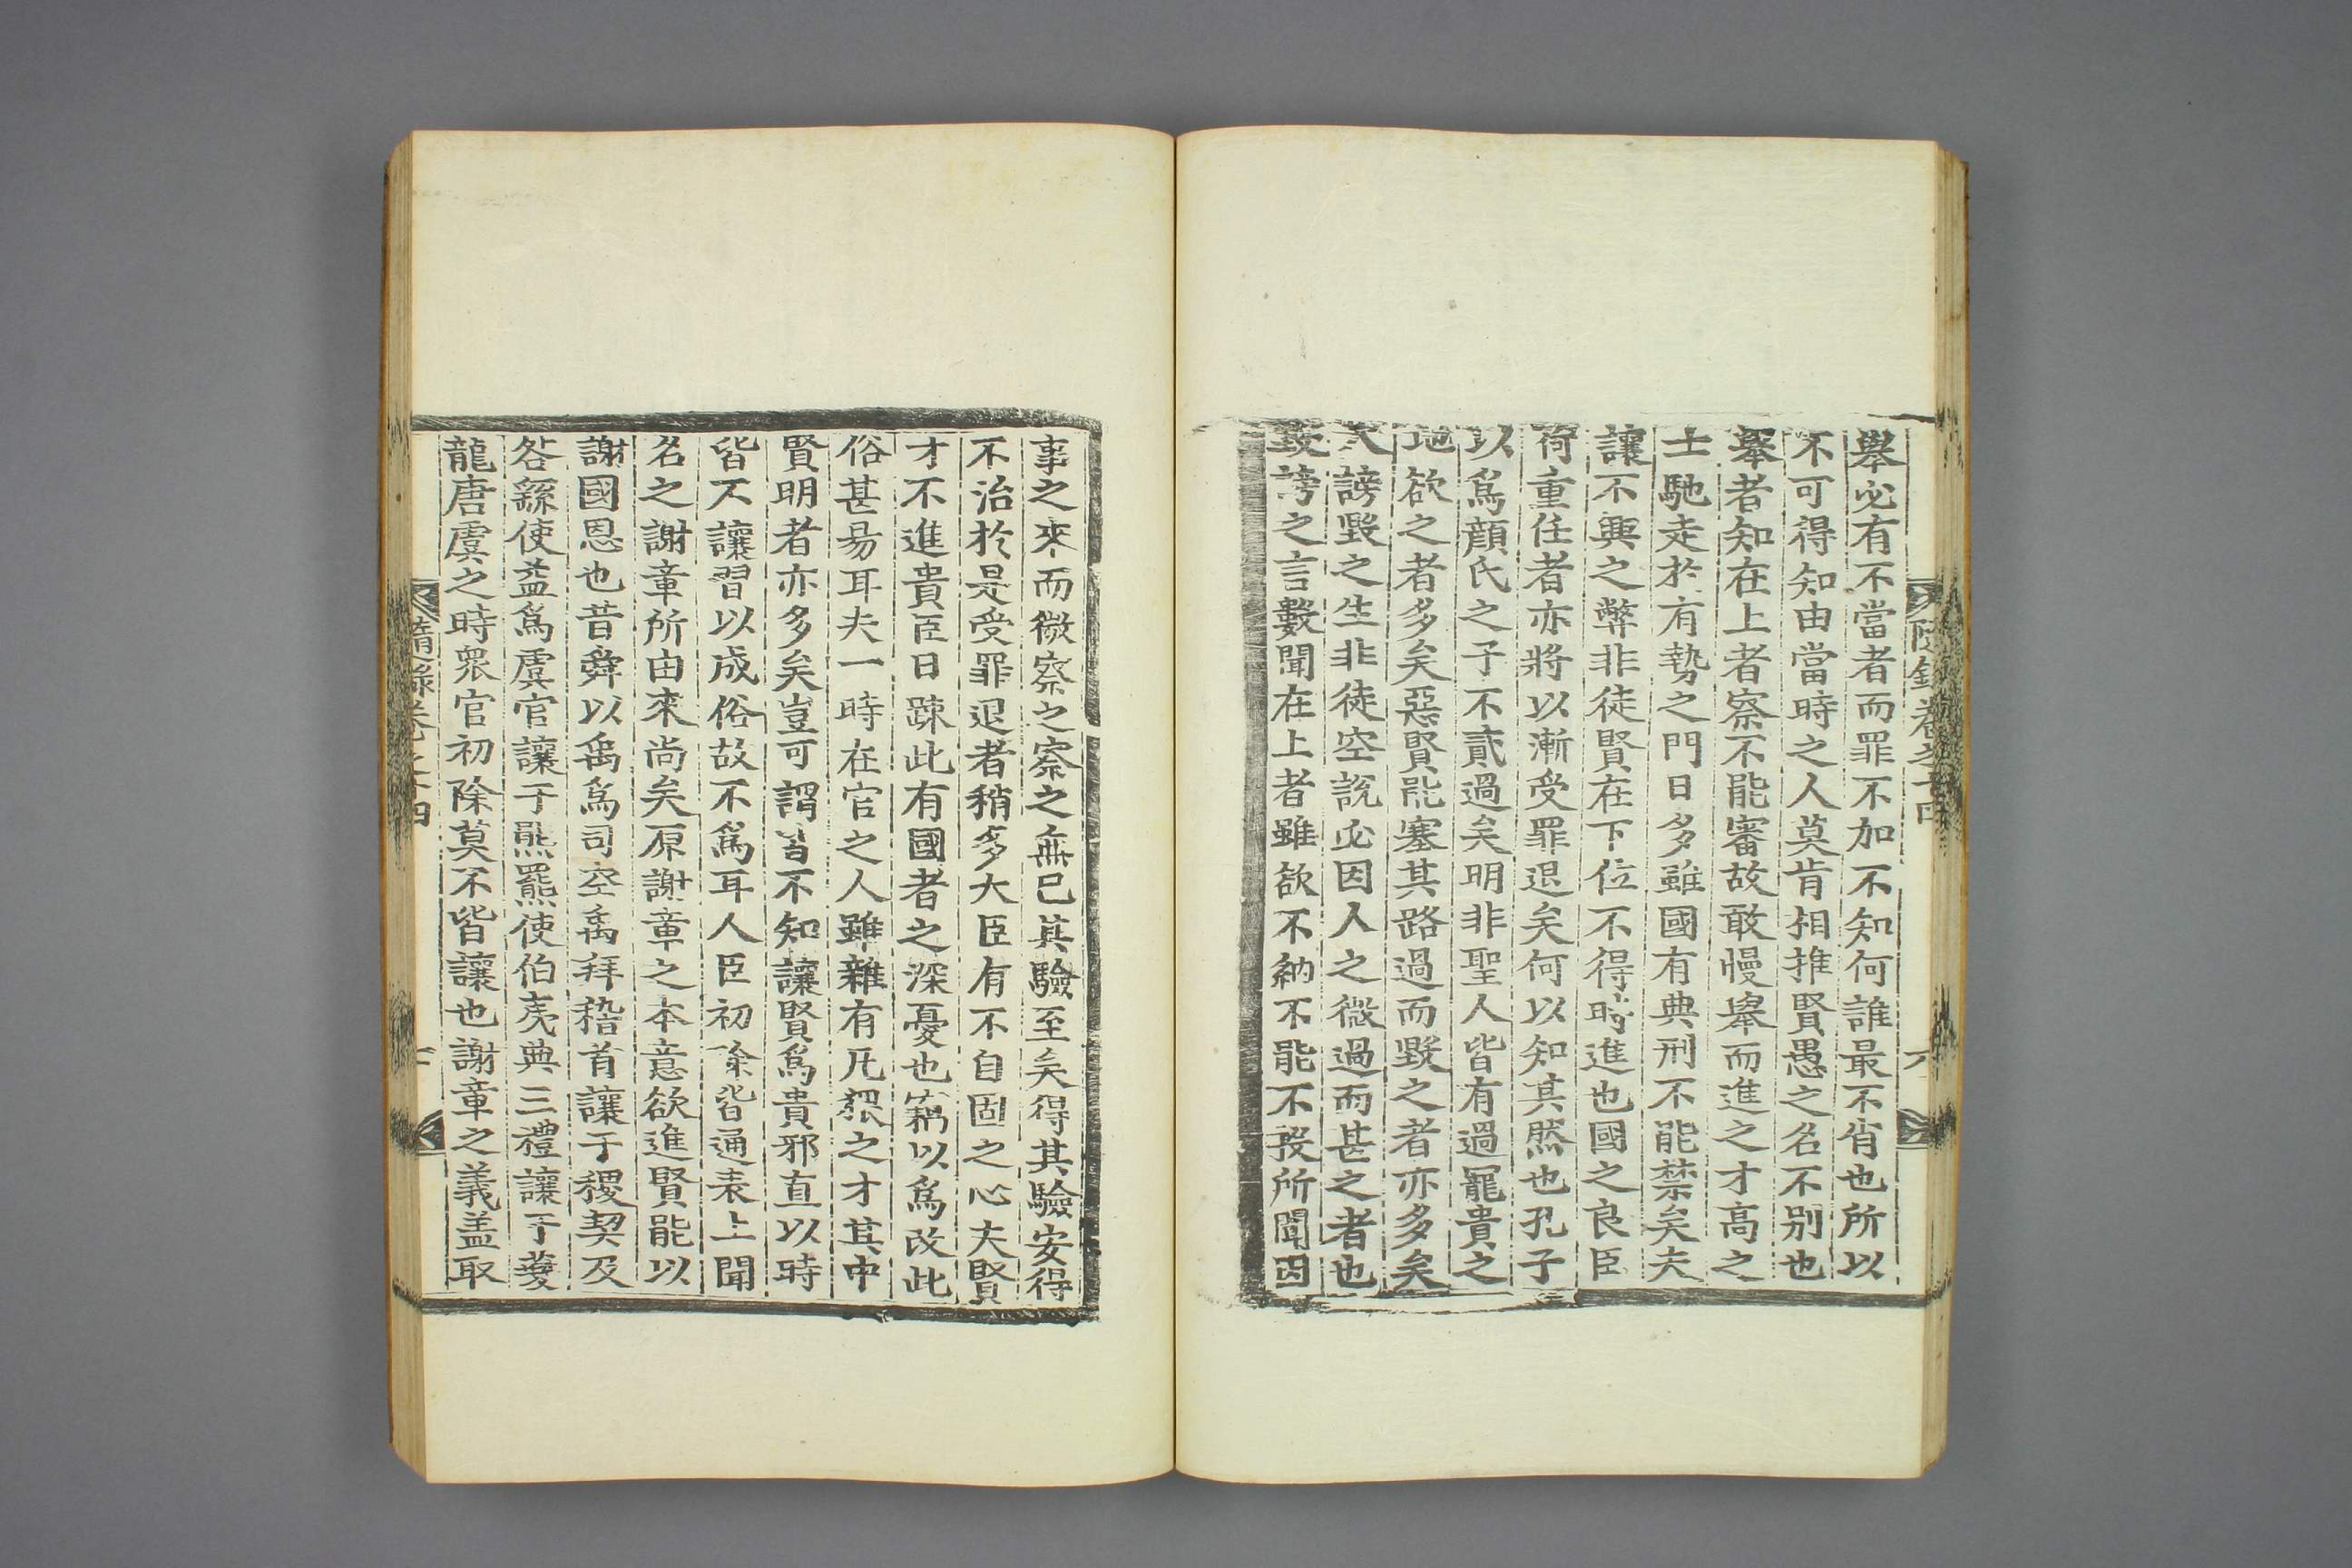 舉必有不當者而罪不加不知何誰最不肖也所以
不可得知由當時之人莫肯相推賢愚之名不别也
舉者知在上者察不能審故敢慢舉而進之才高之
士馳走於有勢之門日多雖國有典刑不能禁矣夫
讓不興之弊非徒賢在下位不得時進也國之良臣
荷重任者亦將以漸受罪退矣何以知其然也孔子
以爲顔氏之子不貳過矣明非聖人皆有過寵貴之
地欲之者多矣惡賢能塞其路過而毁之者亦多矣
夫謗毁之生非徒空說必因人之微過而甚之者也
毁謗之言數聞在上者雖欲不納不能不投所聞因
隨錄卷之十四
事之來而微察之察之無已其驗至矣得其驗安得
不治於是受罪退者稍多大臣有不自固之心夫賢
才不進貴臣日踈此有國者之深憂也竊以爲改此
俗甚易耳夫一時在官之人雖雜有凡猥之才其中
賢明者亦多矣豈可謂皆不知讓賢爲貴邪直以時
皆不讓習以成俗故不爲耳人臣初除皆通表上聞
名之謝章所由來尚矣原謝章之本意欲進賢能以
謝國恩也昔舜以禹爲司空禹拜稽首讓于稷契及
咎繇使益爲虞官讓于熊羆使伯夷典三禮讓于夔
龍唐虞之時衆官初除莫不皆讓也謝章之義盖取
隨錄卷之十四